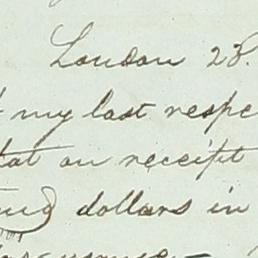 London 28.
my last respe
tat on receipt
dollars in